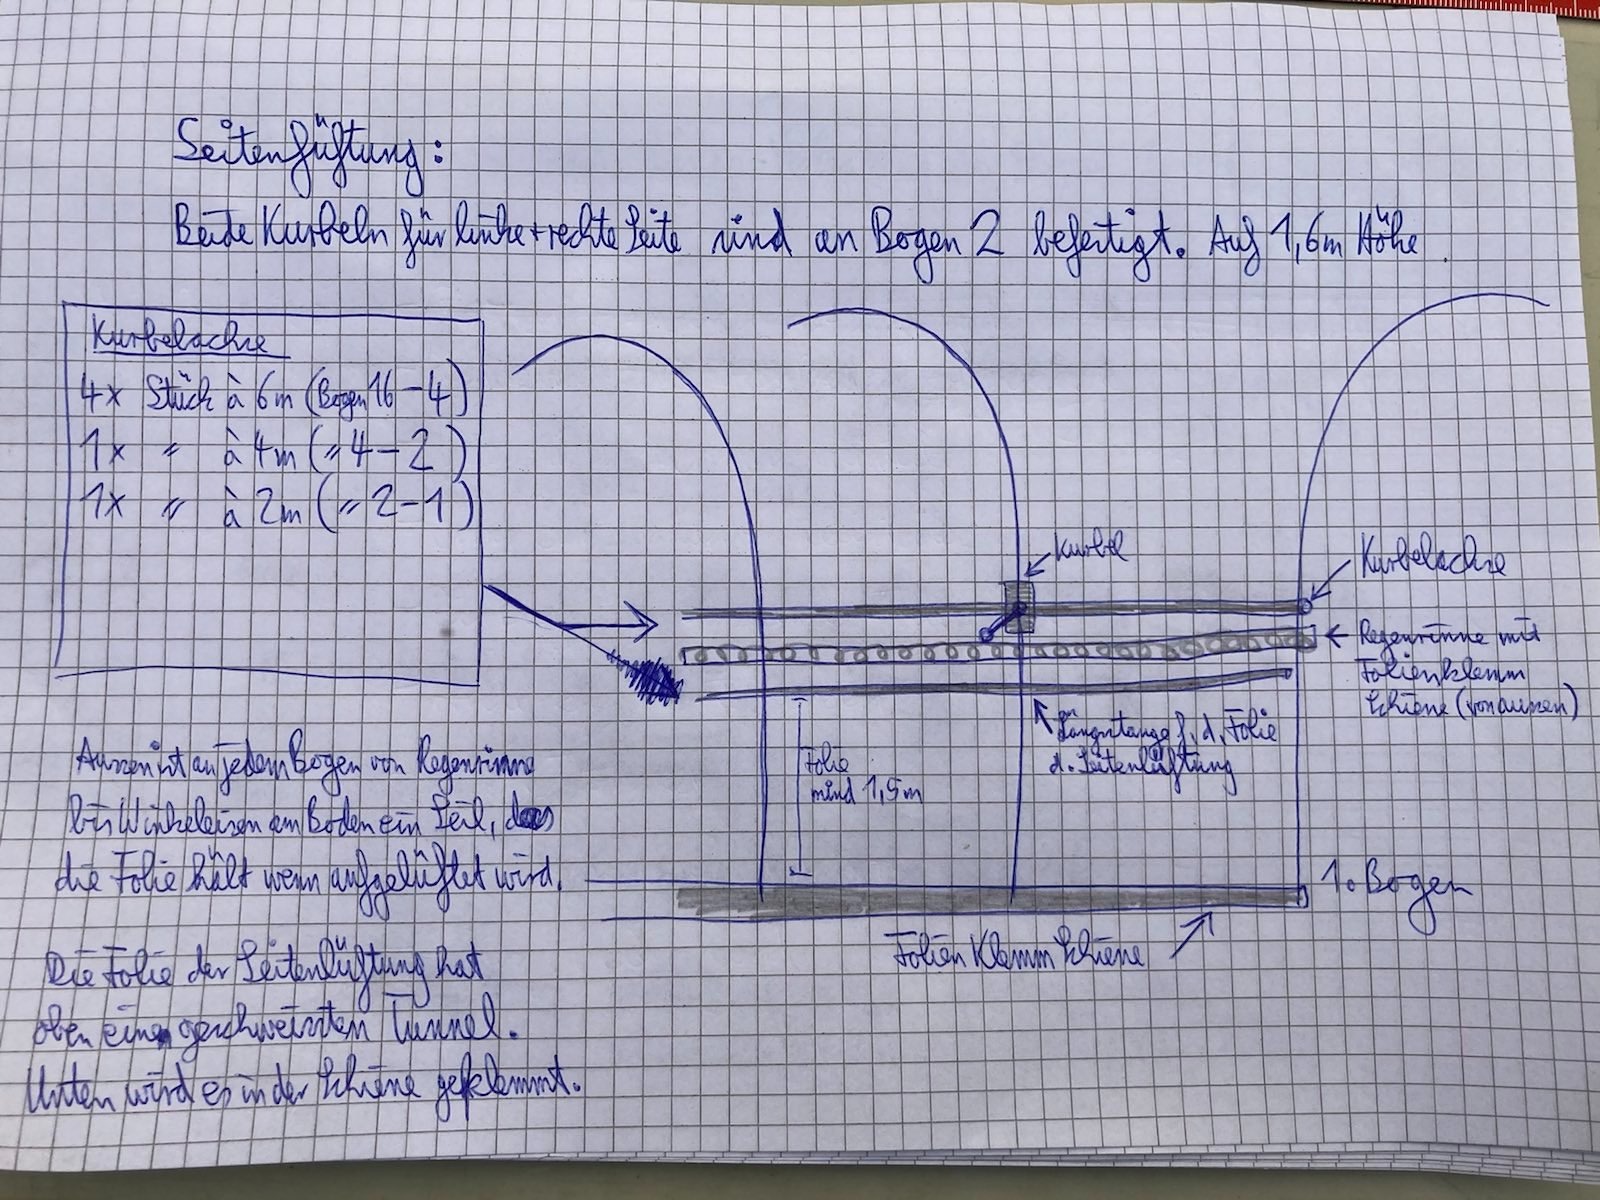 Seitenlüftung:
Beide Kurbeln für linke + rechte Seite sind an Bogen 2 befestigt. Auf 1,6m Höhe.
Kurbelachse
4x Stück à 6m (Bogen 16 - 4)
1x " à 4m (" 4 - 2)
1x " à 2m (" 2 - 1)
Kurbel
Kurbelachse
Regenrinne mit
Folienklemm
Schiene (von aussen)
Längsstange f. d. Folie
d. Seitenlüftung
Folie
mind 1,5m
Aussen ist an jedem Bogen von Regenrinne
bis Winkeleisen am Boden ein Seil, das
die Folie hält wenn aufgelüftet wird.
1. Bogen
Folien Klemm Schiene
Die Folie der Seitenlüftung hat
oben ein geschweissten Tunnel.
Unten wird es in der Schiene geklemmt.